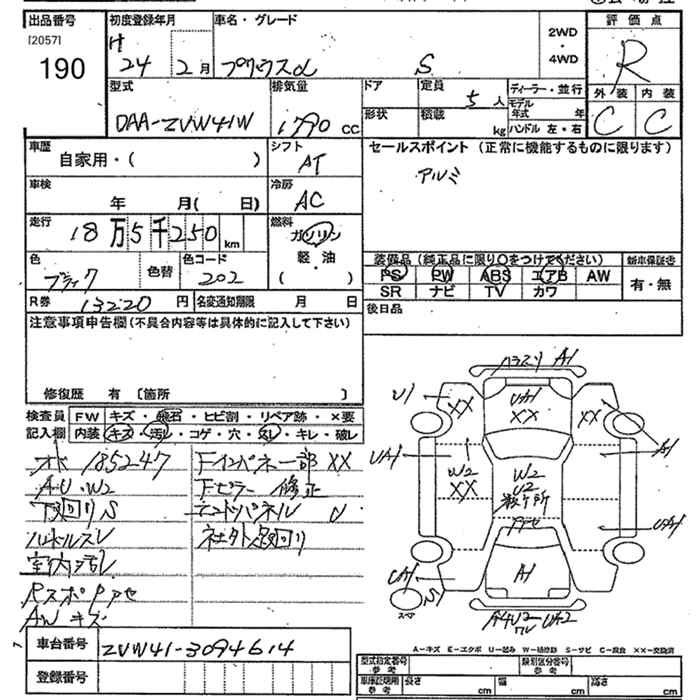 出品番号 初度登録年月 車名・グレード 2WD・4WD 評価点
[2057] 190
24 2月 プリウスα S R
型式 排気量 ドア 定員 5人 ディーラー・並行 外装 内装
DAA-ZVW41W 1790 CC 形状 積載 kg モデル年式 年 ハンドル 左・右 C C
車歴 シフト セールスポイント (正常に機能するものに限ります)
自家用・( ) AT アルミ
車検 冷房
年 月( 日) AC
走行 燃料
18万5千250 km ガソリン
軽・油
( )
色 色替 色コード
ブラック 202
装備品 (純正品に限り○をつけてください) 新車保証書
PS PW ABS エアB AW 有・無
SR ナビ TV カワ
R券 13220円 名変通知期限 月 日 後日品
注意事項申告欄 (不具合内容等は具体的に記入して下さい)
修復歴 有 〔箇所 〕
検査員 FW キズ・飛石・ヒビ割・リペア跡・×要
記入欄 内装 キズ・汚レ・コゲ・穴・・キレ・破レ
185247
AU・W2
S
室内汚レ
AW キズ
インパネ一部 XX
ピラー 修正
エンドパネル U
社外
A1
U1 XX UA1 XX XX
UA1 W2 XX W2 U2 A1
UA1
UA1 A1
S1 スペア
UA2
A-キズ E-エクボ U-凹み W-補修跡 S-サビ C-腐食 XX-交換済
車台番号 ZVW41-3094614
登録番号
型式指定番号 参考 類別区分番号 参考
車庫証明用 参考 長さ cm 幅 cm 高さ cm